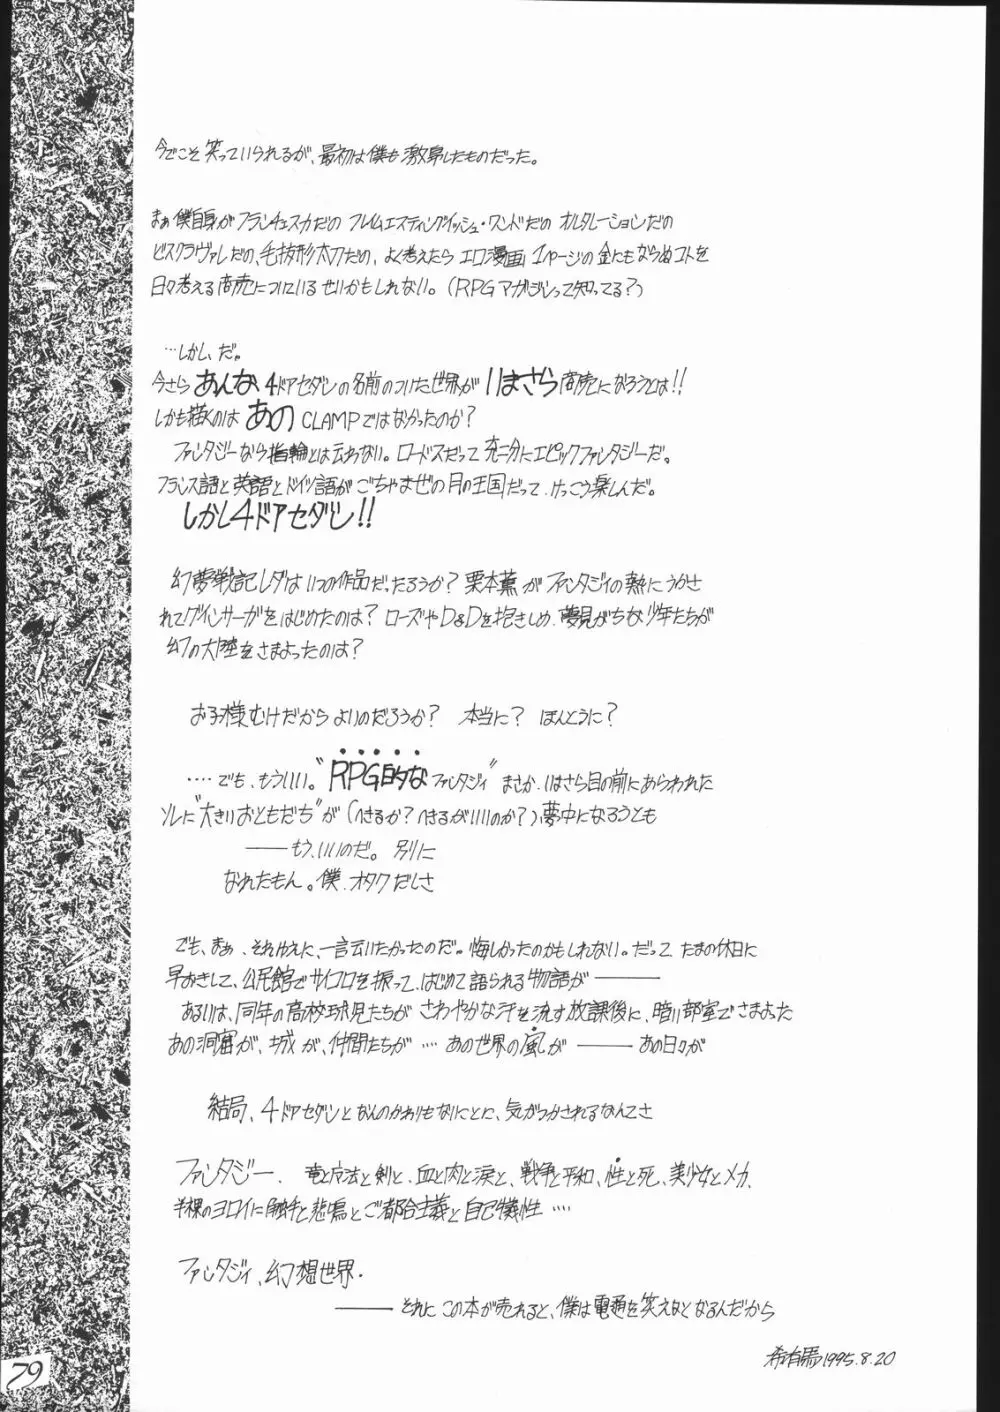 今でこそ笑っていられるが、最初は僕も激昴したものだった。
まぁ僕自身がフランチェスカだの フレイムエスティングイッシュ・ワンドだの オルタレーションだの
ビスクラヴァレだの、毛抜形太刀だの、よく考えたら エロ漫画 1ページの金にもならぬコトを
日々考える商売についているせいかもしれない。(RPGマガジンって知ってる?)
…しかし、だ。
今さら あんな 4ドアセダンの名前のついた世界が いまさら 商売になろうとは!!
しかも描くのは あの CLAMPではなかったのか?
ファンタジーなら指輪とは云わない。ロードスだって 充二分にエピックファンタジーだ。
フランス語と英語とドイツ語が ごちゃまぜの月の王国だって、けっこう楽しんだ。
しかし4ドアセダン!!
幻夢戦記レダは いつの作品だったろうか? 栗本薫が ファンタジィの熱にうかさ
れてグインサーガをはじめたのは? ローズやD&Dを抱きしめ、夢見がちな少年たちが
幻の大陸をさまよったのは?
お子様むけだから よいのだろうか? 本当に? ほんとうに?
‥‥でも、もういい。“RPG的なファンタジィ” まさか、いまさら目の前にあらわれた
ソレに“大きいおともだち”が (へきるか? へきるがいいのか?) 夢中になろうとも
――もう、いいのだ。別に
なれたもん。僕、オタクだしさ
でも、まぁ、それゆえに、一言云いたかったのだ。悔しかったのかもしれない。だって たまの休日に
早おきして、公民館でサイコロを振って、はじめて語られる物語が――
あるいは、同年の高校球児たちが さわやかな汗を流す放課後に、暗い部室でさまよった
あの洞窟が、城が、仲間たちが ‥‥ あの世界の風が ―― あの日々が
結局、4ドアセダンとなんのかわりもないことに、気がつかされるなんてさ
ファンタジー、竜と魔法と剣と、血と肉と涙と、戦争と平和、性と死、美少女とメカ、
半裸のヨロイに触手と悲鳴とご都合主義と自己犠牲‥‥
ファンタジィ、幻想世界・
――それに この本が売れると、僕は電通を笑えなくなるんだから
希有馬 1995.8.20
79